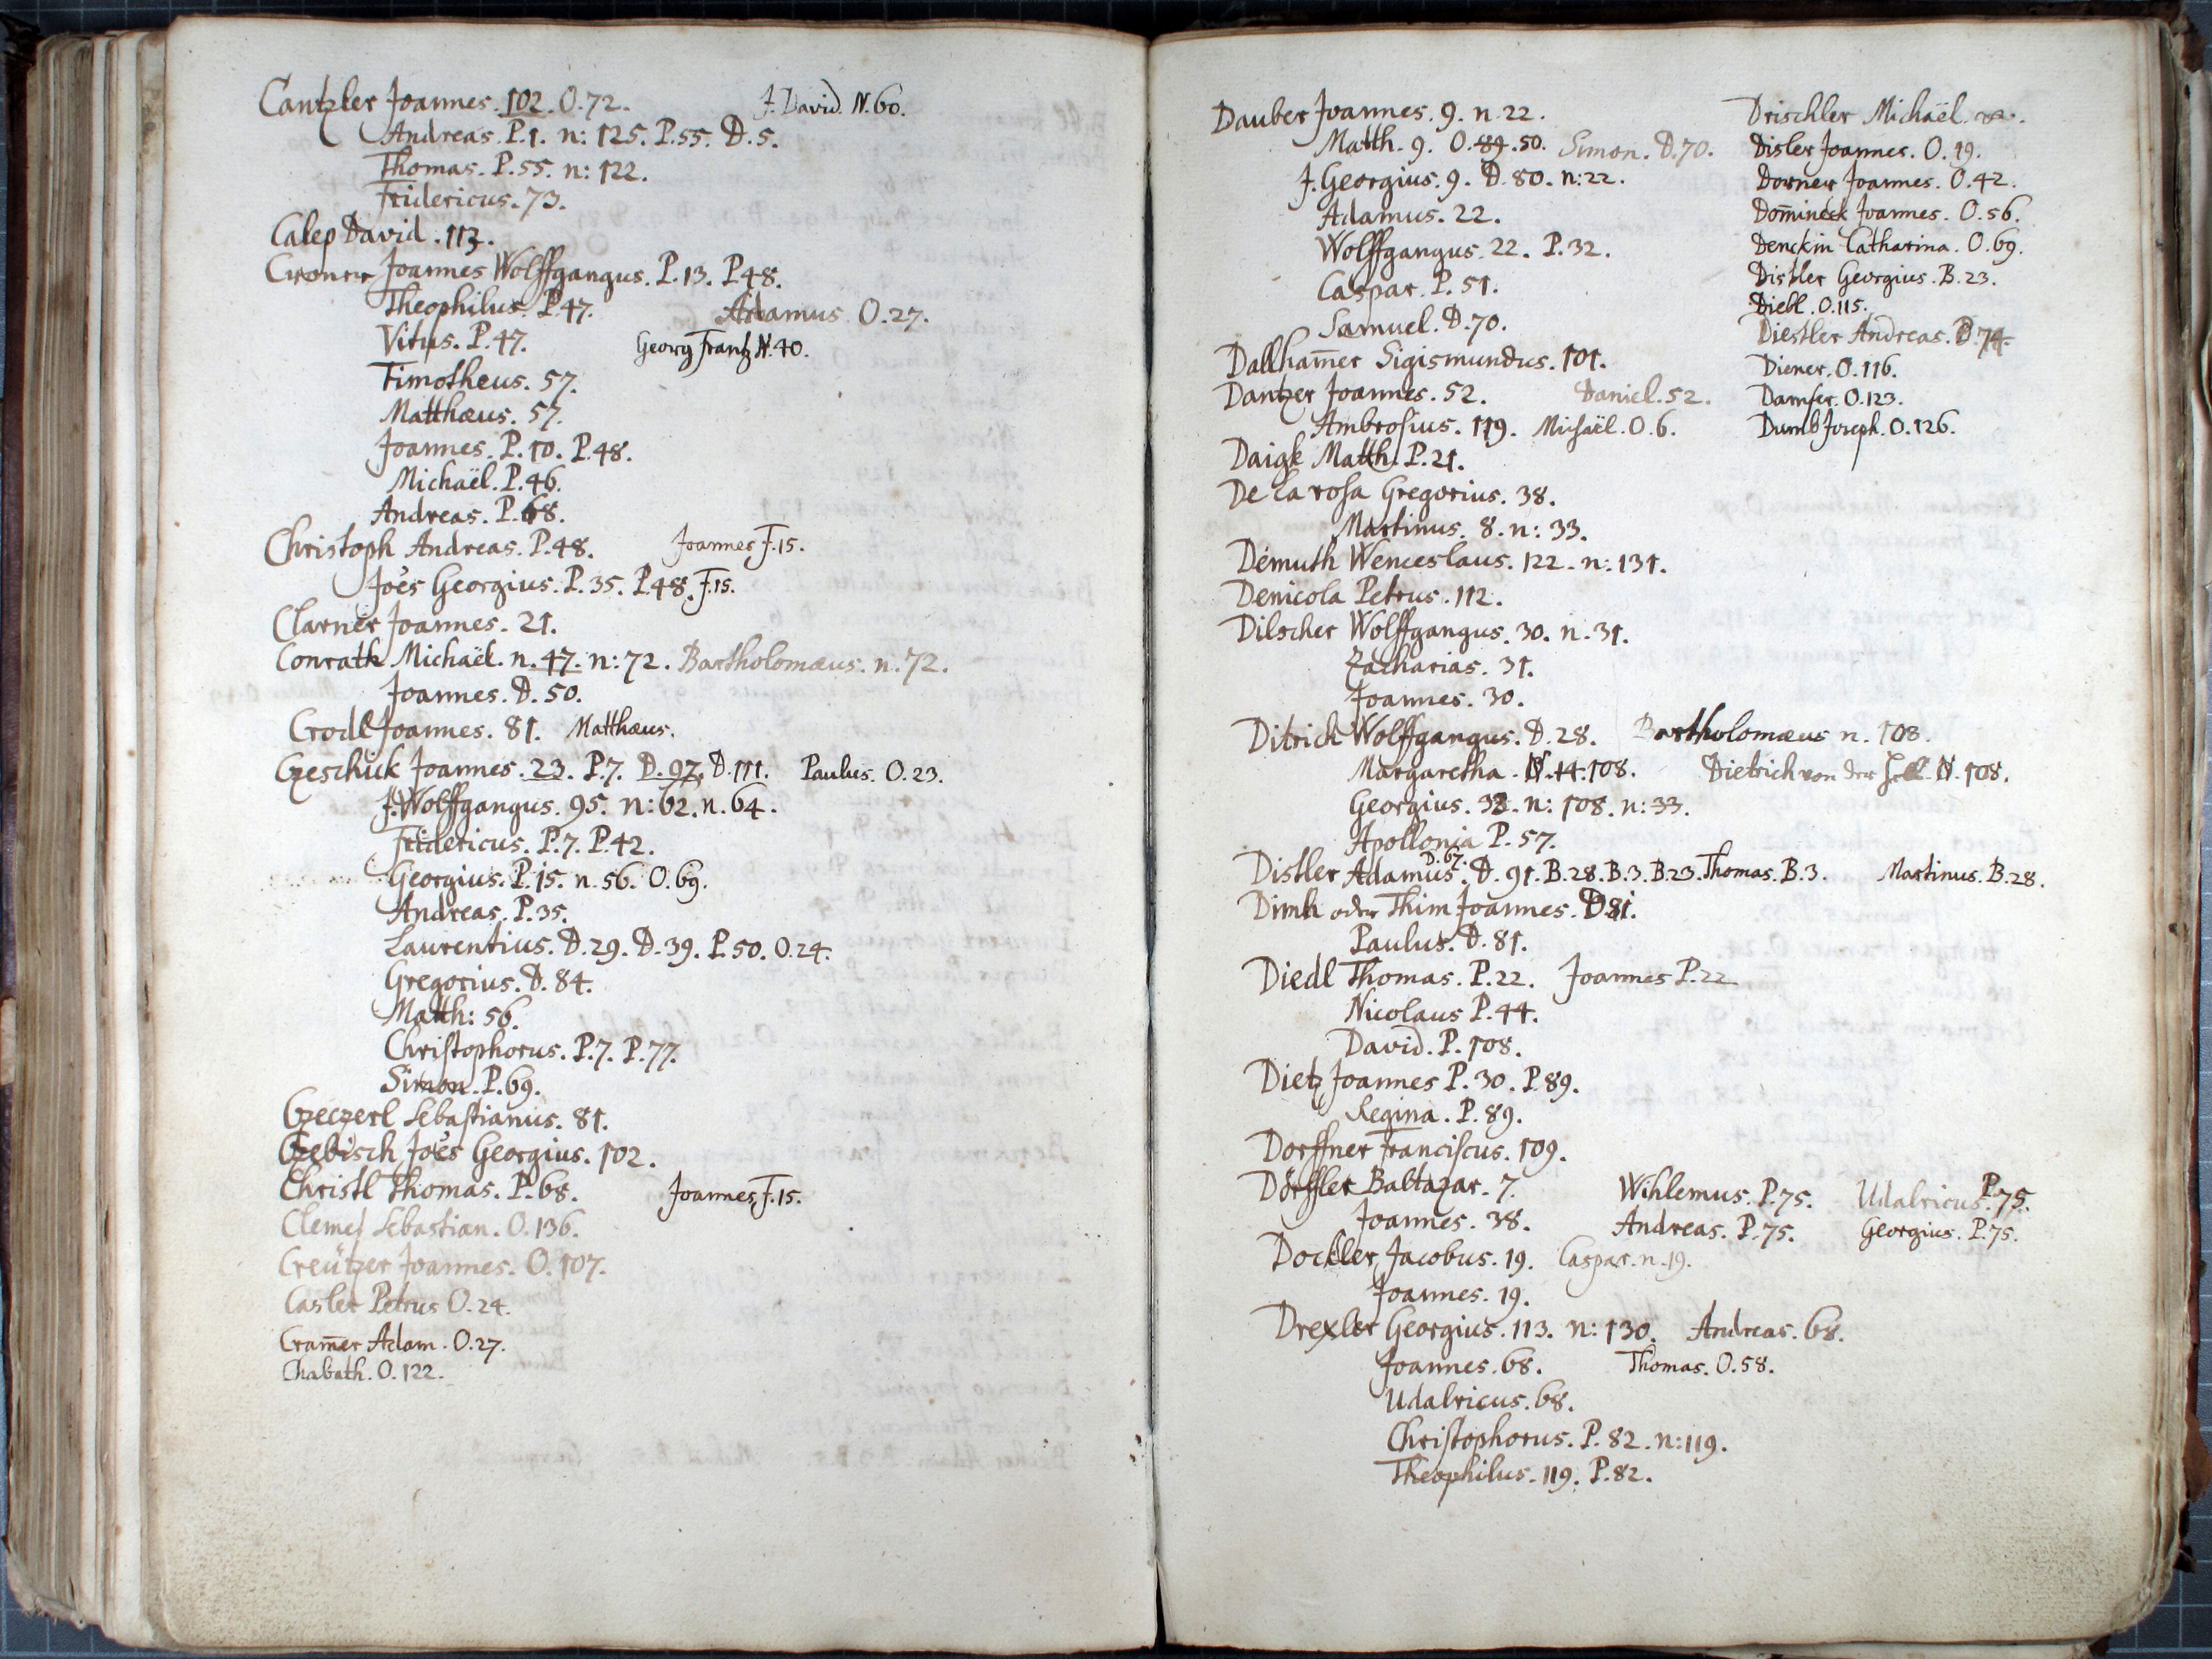 Cantzler Joannes. 102. O.72. J. David. N.60.
Andreas. P.1. n: 125. P.55. D.5.
Thomas. P.55. n: 122.
Fridericus. 73.
Calep David. 113.
Croner Joannes Wolffgangus. P.13. P.48.
Theophilus. P.47. Adamus. O.27.
Vitus. P.47. Georg Frantz N.40.
Timotheus. 57.
Matthæus. 57.
Joannes. P.10. P.48.
Michaël. P.46.
Andreas. P.68.
Christoph Andreas. P.48. Joannes F.15.
Joes Georgius. P.35. P.48. F.15.
Clarner Joannes. 21.
Conrath Michaël. n.47. n:72. Bartholomæus. n.72.
Joannes. D.50.
Crodl Joannes. 81. Matthæus.
Czeschick Joannes. 23. P.7. D.97. D.111. Paulus. O.23.
J. Wolffgangus. 95. n:62. n.64.
Fridericus. P.7. P.42.
Georgius. P.15. n.56. O.69.
Andreas. P.35.
Laurentius. D.29. D.39. P.50. O.24.
Gregorius. D.84.
Matth: 56.
Christophorus. P.7. P.77.
Simon. P.69.
Czeczerl Sebastianus. 81.
Czebisch Joes Georgius. 102.
Christl Thomas. P.68. Joannes F.15.
Clemes Sebastian. O.136.
Creützer Joannes. O.107.
Casler Petrus O.24.
Cram̄er Adam. O.27.
Chabath. O.122.
Dauber Joannes. 9. n.22.
Matth. 9. O.89.50. Simon. D.70.
J. Georgius. 9. D.80. n:22.
Adamus. 22.
Wolffgangus. 22. P.32.
Caspar. P.51.
Samuel. D.70.
Dallham̄er Sigismundus. 101.
Dantzer Joannes. 52. Daniel. 52.
Ambrosius. 119. Michaël. O.6.
Daigk Matth. P.21.
De la rosa Gregorius. 38.
Martinus. 8. n: 33.
Demuth Wenceslaus. 122. n: 131.
Denicola Petrus. 112.
Dilscher Wolffgangus. 30. n.31.
Zacharias. 31.
Joannes. 30.
Ditrich Wolffgangus. D.28. Bartholomæus n. 108.
Margaretha. N.14.108. Dietrich von der N.108.
Georgius. 32. n: 108. n:33.
Apollonia P.57.
Distler Adamus. D.67. D.91. B.28. B.3. B.23. Thomas. B.3. Martinus. B.28.
Dimh oder Thim Joannes. D81.
Paulus. D.81.
Diedl Thomas. P.22. Joannes P.22
Nicolaus P.44.
David. P.108.
Dietz Joannes P.30. P.89.
Regina. P.89.
Dorffner Franciscus. 109.
Dörffler Baltazar. 7. Wihlemus. P.75. Udalricus. P.75.
Joannes. 38. Andreas. P.75. Georgius. P.75.
Dockler Jacobus. 19. Caspar. n.19.
Joannes. 19.
Drexler Georgius. 113. n: 130. Andreas. 68.
Joannes. 68. Thomas. O.58.
Udalricus. 68.
Christophorus. P.82. n:119.
Theophilus. 119. P.82.
Drischler Michaël.
Disler Joannes. O.49.
Dorner Joannes. O.42.
Dom̄ineck Joannes. O.56.
Denckin Catharina. O.69.
Distler Georgius. B.23.
Diebl. O.115.
Diestler Andreas. D.74.
Diener. O.116.
Damser. O.123.
Dumb Joseph. O.126.